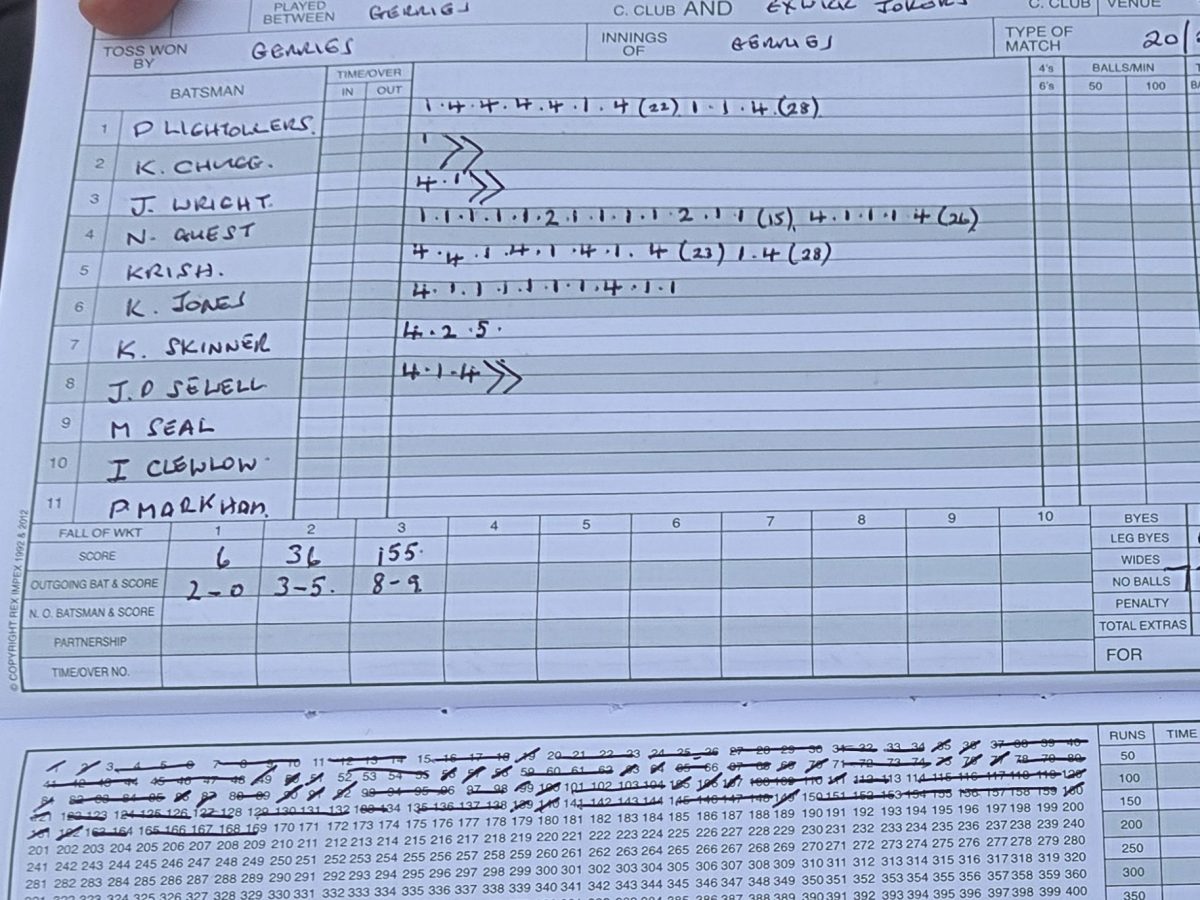 PLAYED BETWEEN GERRIES C. CLUB AND EXWICK JOKERS C. CLUB VENUE
TOSS WON BY GERRIES INNINGS OF GERRIES TYPE OF MATCH 20/
BATSMAN TIME/OVER IN OUT 4's 6's BALLS/MIN 50 100
1 P LIGHTOLLERS. 1.4.4.4.4.1.4 (22) 1.1.4.(28)
2 K. CHUGG. 1 >>
3 J. WRIGHT. 4.1 >>
4 N. GUEST 1.1.1.1.1.2.1.1.1.1.2.1.1 (15), 4.1.1.1.4 (26)
5 KRISH. 4.4.1.4.1.4.1.4 (23) 1.4 (28)
6 K. JONES 4.1.1.1.1.1.1.4.1.1
7 K. SKINNER 4.2.5.
8 J.D SEWELL 4.1.4 >>
9 M SEAL
10 I CLEWLOW
11 P. MARKHAM.
FALL OF WKT 1 2 3 4 5 6 7 8 9 10 BYES
SCORE 6 36 155. LEG BYES
OUTGOING BAT & SCORE 2-0 3-5. 8-9 WIDES
N. O. BATSMAN & SCORE NO BALLS
PARTNERSHIP PENALTY
TOTAL EXTRAS
TIME/OVER NO. FOR
© COPYRIGHT REX IMPEX 1992 & 2012
RUNS TIME
1 2 3 4 5 6 7 8 9 10 11 12 13 14 15 16 17 18 19 20 21 22 23 24 25 26 27 28 29 30 31 32 33 34 35 36 37 38 39 40 50
41 42 43 44 45 46 47 48 49 50 51 52 53 54 55 56 57 58 59 60 61 62 63 64 65 66 67 68 69 70 71 72 73 74 75 76 77 78 79 80
81 82 83 84 85 86 87 88 89 90 91 92 93 94 95 96 97 98 99 100 101 102 103 104 105 106 107 108 109 110 111 112 113 114 115 116 117 118 119 120 100
121 122 123 124 125 126 127 128 129 130 131 132 133 134 135 136 137 138 139 140 141 142 143 144 145 146 147 148 149 150 151 152 153 154 155 156 157 158 159 160 150
161 162 163 164 165 166 167 168 169 170 171 172 173 174 175 176 177 178 179 180 181 182 183 184 185 186 187 188 189 190 191 192 193 194 195 196 197 198 199 200 200
201 202 203 204 205 206 207 208 209 210 211 212 213 214 215 216 217 218 219 220 221 222 223 224 225 226 227 228 229 230 231 232 233 234 235 236 237 238 239 240
241 242 243 244 245 246 247 248 249 250 251 252 253 254 255 256 257 258 259 260 261 262 263 264 265 266 267 268 269 270 271 272 273 274 275 276 277 278 279 280 250
281 282 283 284 285 286 287 288 289 290 291 292 293 294 295 296 297 298 299 300 301 302 303 304 305 306 307 308 309 310 311 312 313 314 315 316 317 318 319 320 300
329 330 331 332 333 334 335 336 337 338 339 340 341 342 343 344 345 346 347 348 349 350 351 352 353 354 355 356 357 358 359 360 350